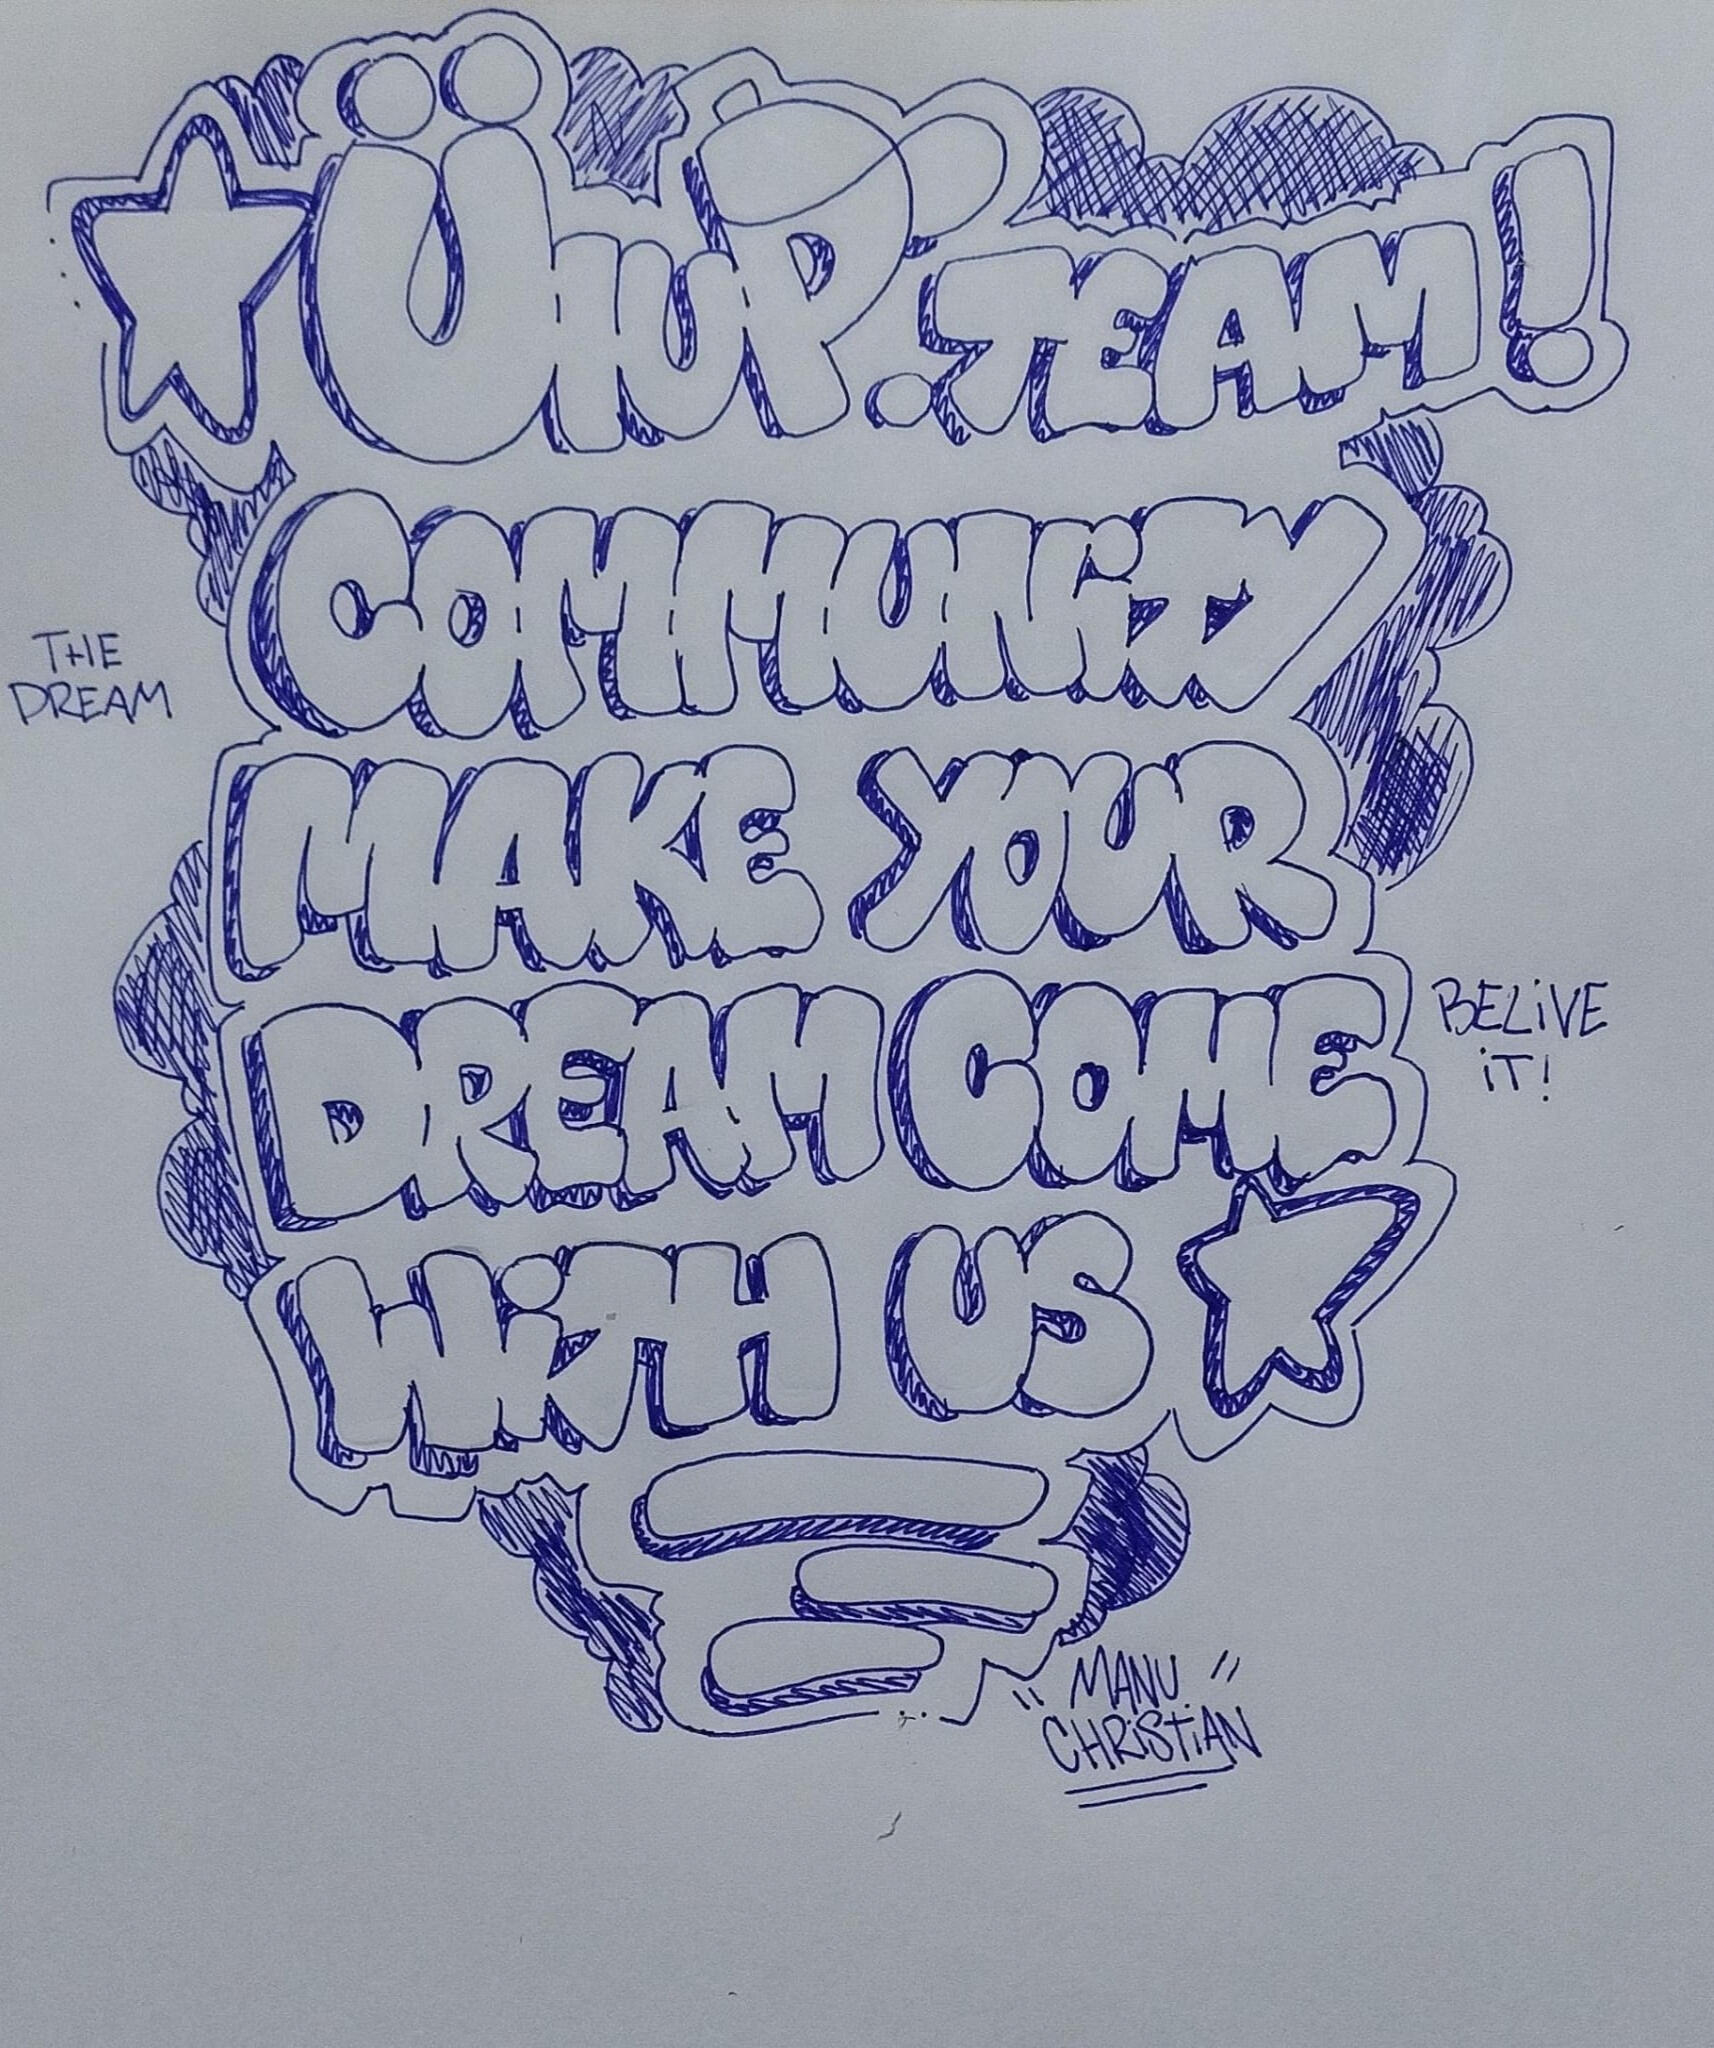 ÜHUP.TEAM!
COMMUNiTY
THE
DREAM
MAKE YOUR
DREAM COME
BELiVE
iT!
WiTH US
"MANU"
CHRiSTiAN